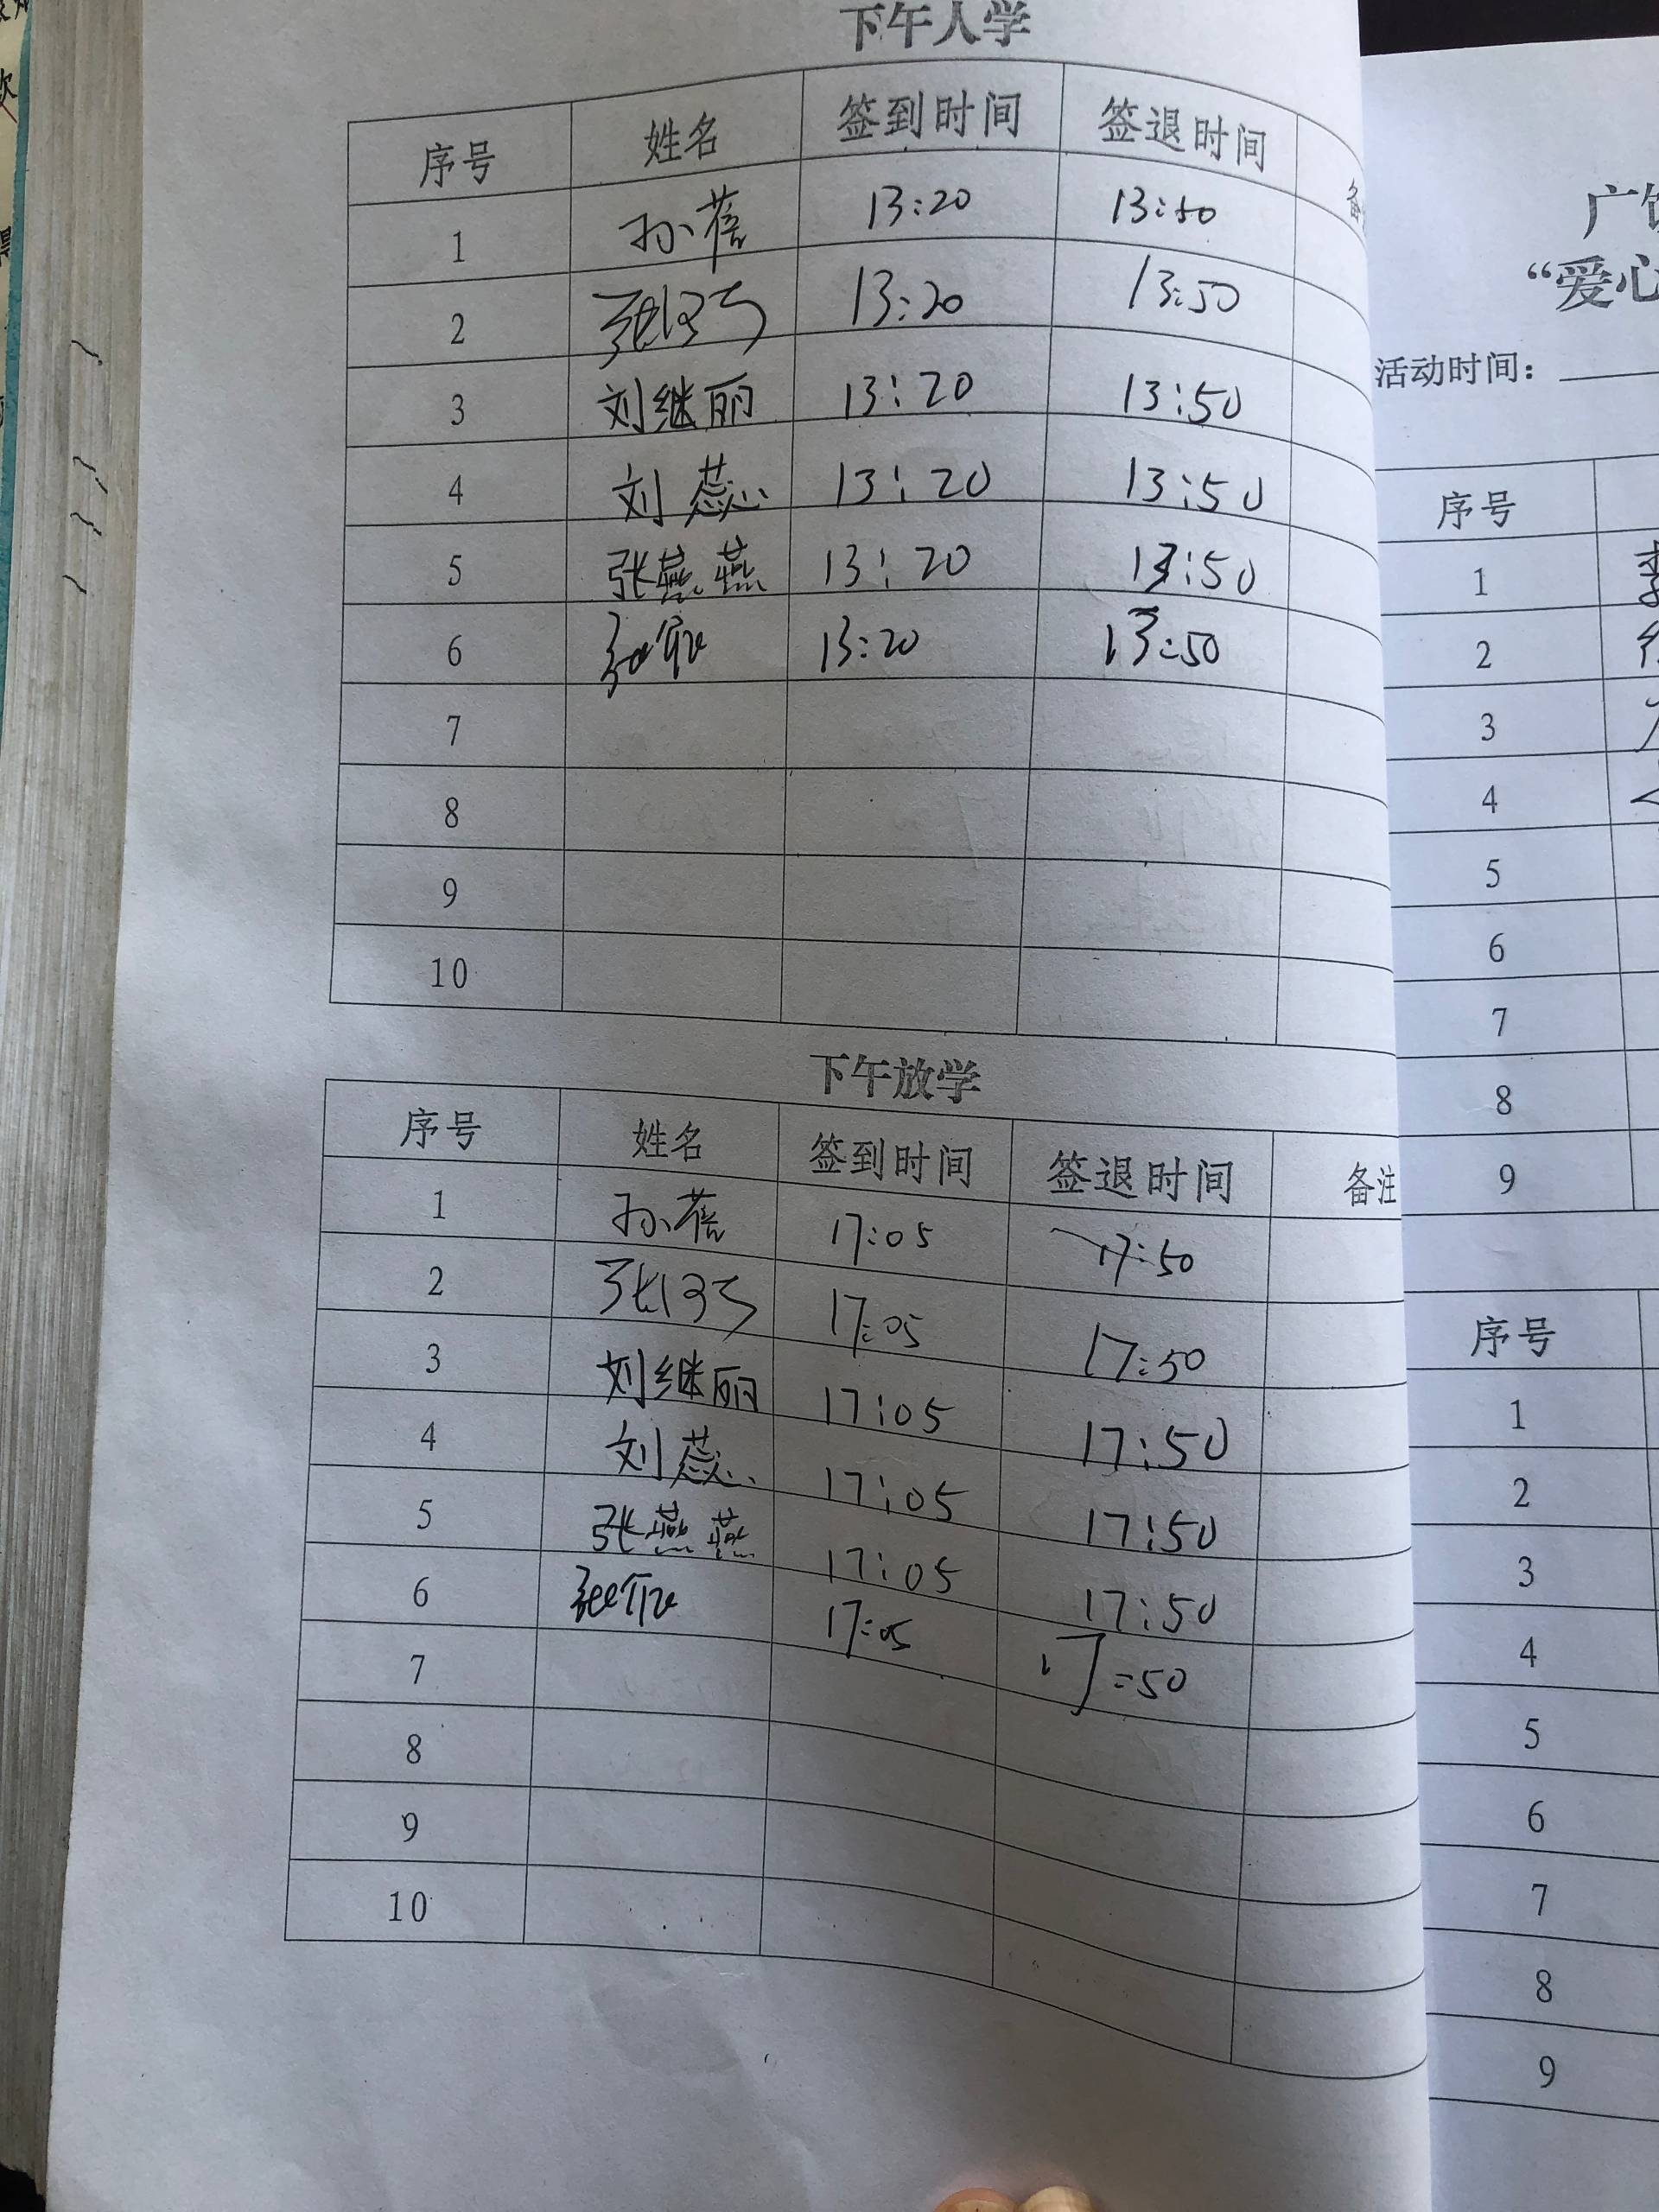 下午入学
序号 姓名 签到时间 签退时间 备
1 孙蓓 13:20 13:50
2 张 13:20 13:50
3 刘继丽 13:20 13:50
4 刘蕊 13:20 13:50
5 张燕燕 13:20 13:50
6 13:20 13:50
7
8
9
10
下午放学
序号 姓名 签到时间 签退时间 备注
1 孙蓓 17:05 17:50
2 张 17:05 17:50
3 刘继丽 17:05 17:50
4 刘蕊 17:05 17:50
5 张燕燕 17:05 17:50
6 17:05 17:50
7
8
9
10
广饶
“爱心
活动时间：
序号
1
2
3
4
5
6
7
8
9
序号
1
2
3
4
5
6
7
8
9